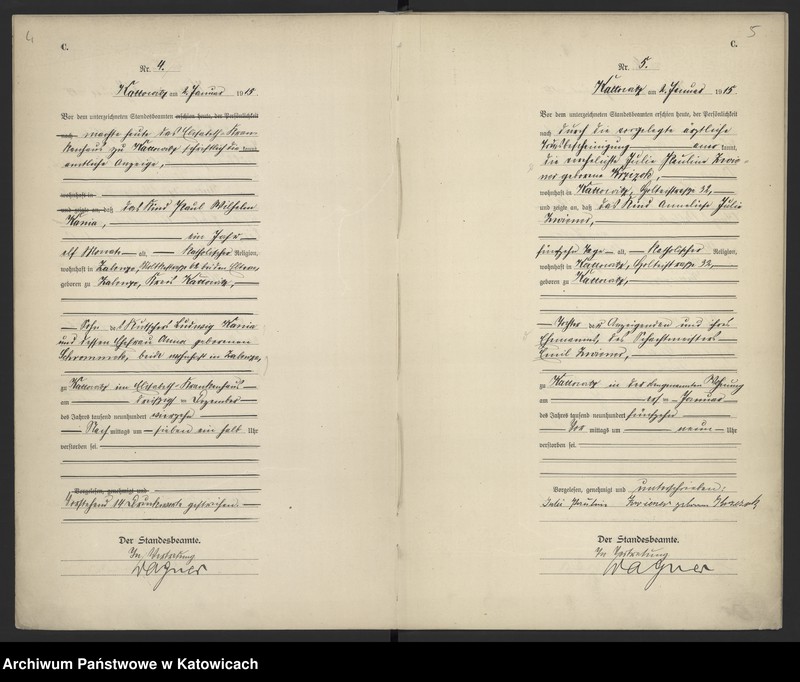 4
C.
Nr. 4.
Kattowitz am 2. Januar 1915.
Vor dem unterzeichneten Standesbeamten erschien heute, der Persönlichkeit
nach machte heute das Elisabeth-Kran-
kenhaus zu Kattowitz schriftlich die kannt,
amtliche Anzeige,
wohnhaft in
und zeigte an, daß das Kind Paul Wilhelm
Kania,
ein Jahr
elf Monate alt, Katholischer Religion,
wohnhaft in Zalenze, bei den Eltern,
geboren zu Zalenze, Kreis Kattowitz,
Sohn des Kutschers Ludwig Kania
und dessen Ehefrau Anna geborenen
beide wohnhaft in Zalenze,
zu Kattowitz im Elisabeth-Krankenhaus
am Dezember
des Jahres tausend neunhundert vierzehn
Nach mittags um sieben ein halb Uhr
verstorben sei.
Vorgelesen, genehmigt und
Vorstehend 14 Druckworte gestrichen.
Der Standesbeamte.
In Vertretung
Wagner
5
C.
Nr. 5.
Kattowitz am 2. Januar 1915
Vor dem unterzeichneten Standesbeamten erschien heute, der Persönlichkeit
nach durch die vorgelegte ärztliche
Todesbescheinigung aner kannt,
die verehelichte Julie Pauline
geborene
wohnhaft in Kattowitz, Holteistraße 32,
und zeigte an, daß das Kind Anneliese Julie
fünfzehn Tage alt, Katholischer Religion,
wohnhaft in Kattowitz, Holteistraße 32,
geboren zu Kattowitz,
Tochter der Anzeigenden und ihres
Ehemannes, des Schachtmeisters
Emil
zu Kattowitz in der Wohnung
am Januar
des Jahres tausend neunhundert fünfzehn
Vor mittags um neun Uhr
verstorben sei.
Vorgelesen, genehmigt und unterschrieben:
geborene
Der Standesbeamte.
In Vertretung
Wagner
Archiwum Państwowe w Katowicach